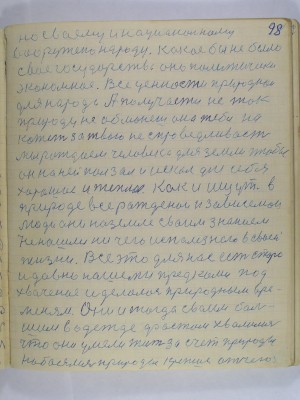 98
по своему и национальному
вооруженому народу. Какое бы не было
свое государство оно политически
экономная. Все ценности природная
для народа А получаетси не так
природу не обманеш она тебя на
кажет за твою не справедливость
мы рождаем человека для земли чтобы
он на ней ползал и искал для себя
хорошее и теплое. Как и ищут в
природе все рожденои и зависемои
люди они на земле своим знанием
Ненашли ни чего исползнаго в своей
жизни. Все это для нас есть старо
и давно нашеми предками под
хвачено и делалос природным вре
менем. Они и тогда своем боль
шим в одежде достатком хвалилис
что они умели жит за счет природы
на богатая природа крепкая